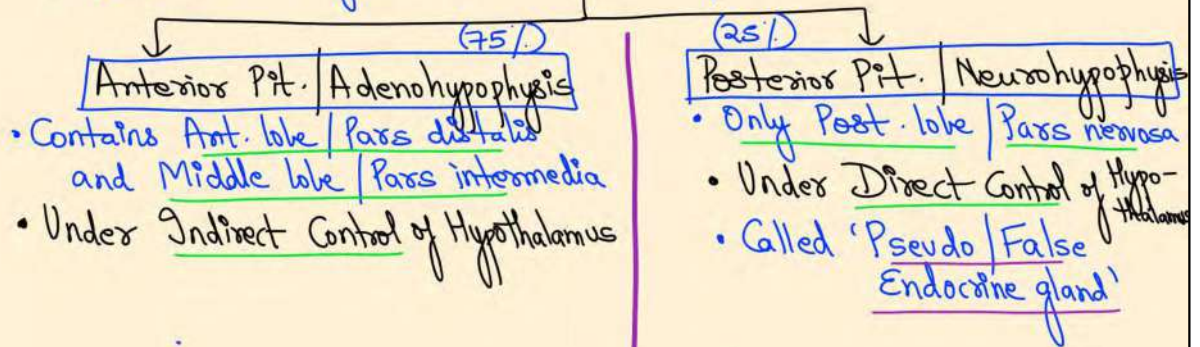 (75%)
Anterior Pit. | Adenohypophysis
• Contains Ant. lobe | Pars distalis
and Middle lobe | Pars intermedia
• Under Indirect Control of Hypothalamus
(25%)
Posterior Pit. | Neurohypophysis
• Only Post. lobe | Pars nervosa
• Under Direct Control of Hypo-
thalamus
• Called 'Pseudo | False
Endocrine gland'